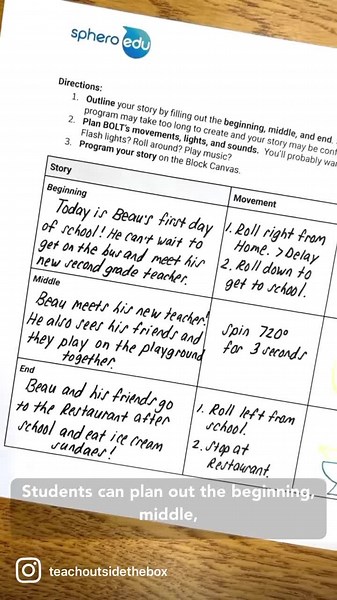 sphero edu
Directions:
1. Outline your story by filling out the beginning, middle, and end.
program may take too long to create and your story may be
2. Plan BOLT's movements, lights, and sounds. You'll probably
Flash lights? Roll around? Play music?
3. Program your story on the Block Canvas.
Story
Movement
Beginning
Today is Beau's first day
of school! He can't wait to
get on the bus and meet his
new second grade teacher.
1. Roll right from
Home. > Delay
2. Roll down to
get to school.
Middle
Beau meets his new teacher!
He also sees his friends and
they play on the playground
together.
Spin 720°
for 3 seconds
End
Beau and his friends go
to the Restaurant after
school and eat ice cream
sundaes!
1. Roll left from
school.
2. Stop at
Restaurant.
Students can plan out the beginning,
middle,
teachoutsidethebox